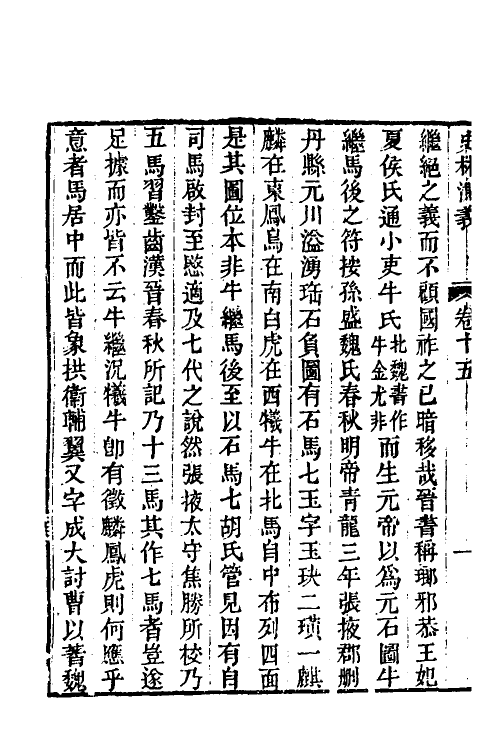 史林測義 卷十五 一
繼絕之義而不顧國祚之已暗移哉晉書稱瑯邪恭王妃
夏侯氏通小吏牛氏北魏書作牛金尤非而生元帝以爲元石圖牛
繼馬後之符按孫盛魏氏春秋明帝青龍三年張掖郡刪
丹縣元川溢湧珤石負圖有石馬七玉字玉玦二璜一麒
麟在東鳳鳥在南白虎在西犧牛在北馬自中布列四面
是其圖位本非牛繼馬後至以石馬七胡氏管見因有自
司馬啟封至愍適及七代之說然張掖太守焦勝所校乃
五馬習鑿齒漢晉春秋所記乃十三馬其作七馬者豈遂
足據而亦皆不云牛繼況犧牛卽有徵麟鳳虎則何應乎
意者馬居中而此皆象拱衛輔翼又字成大討曹以著魏